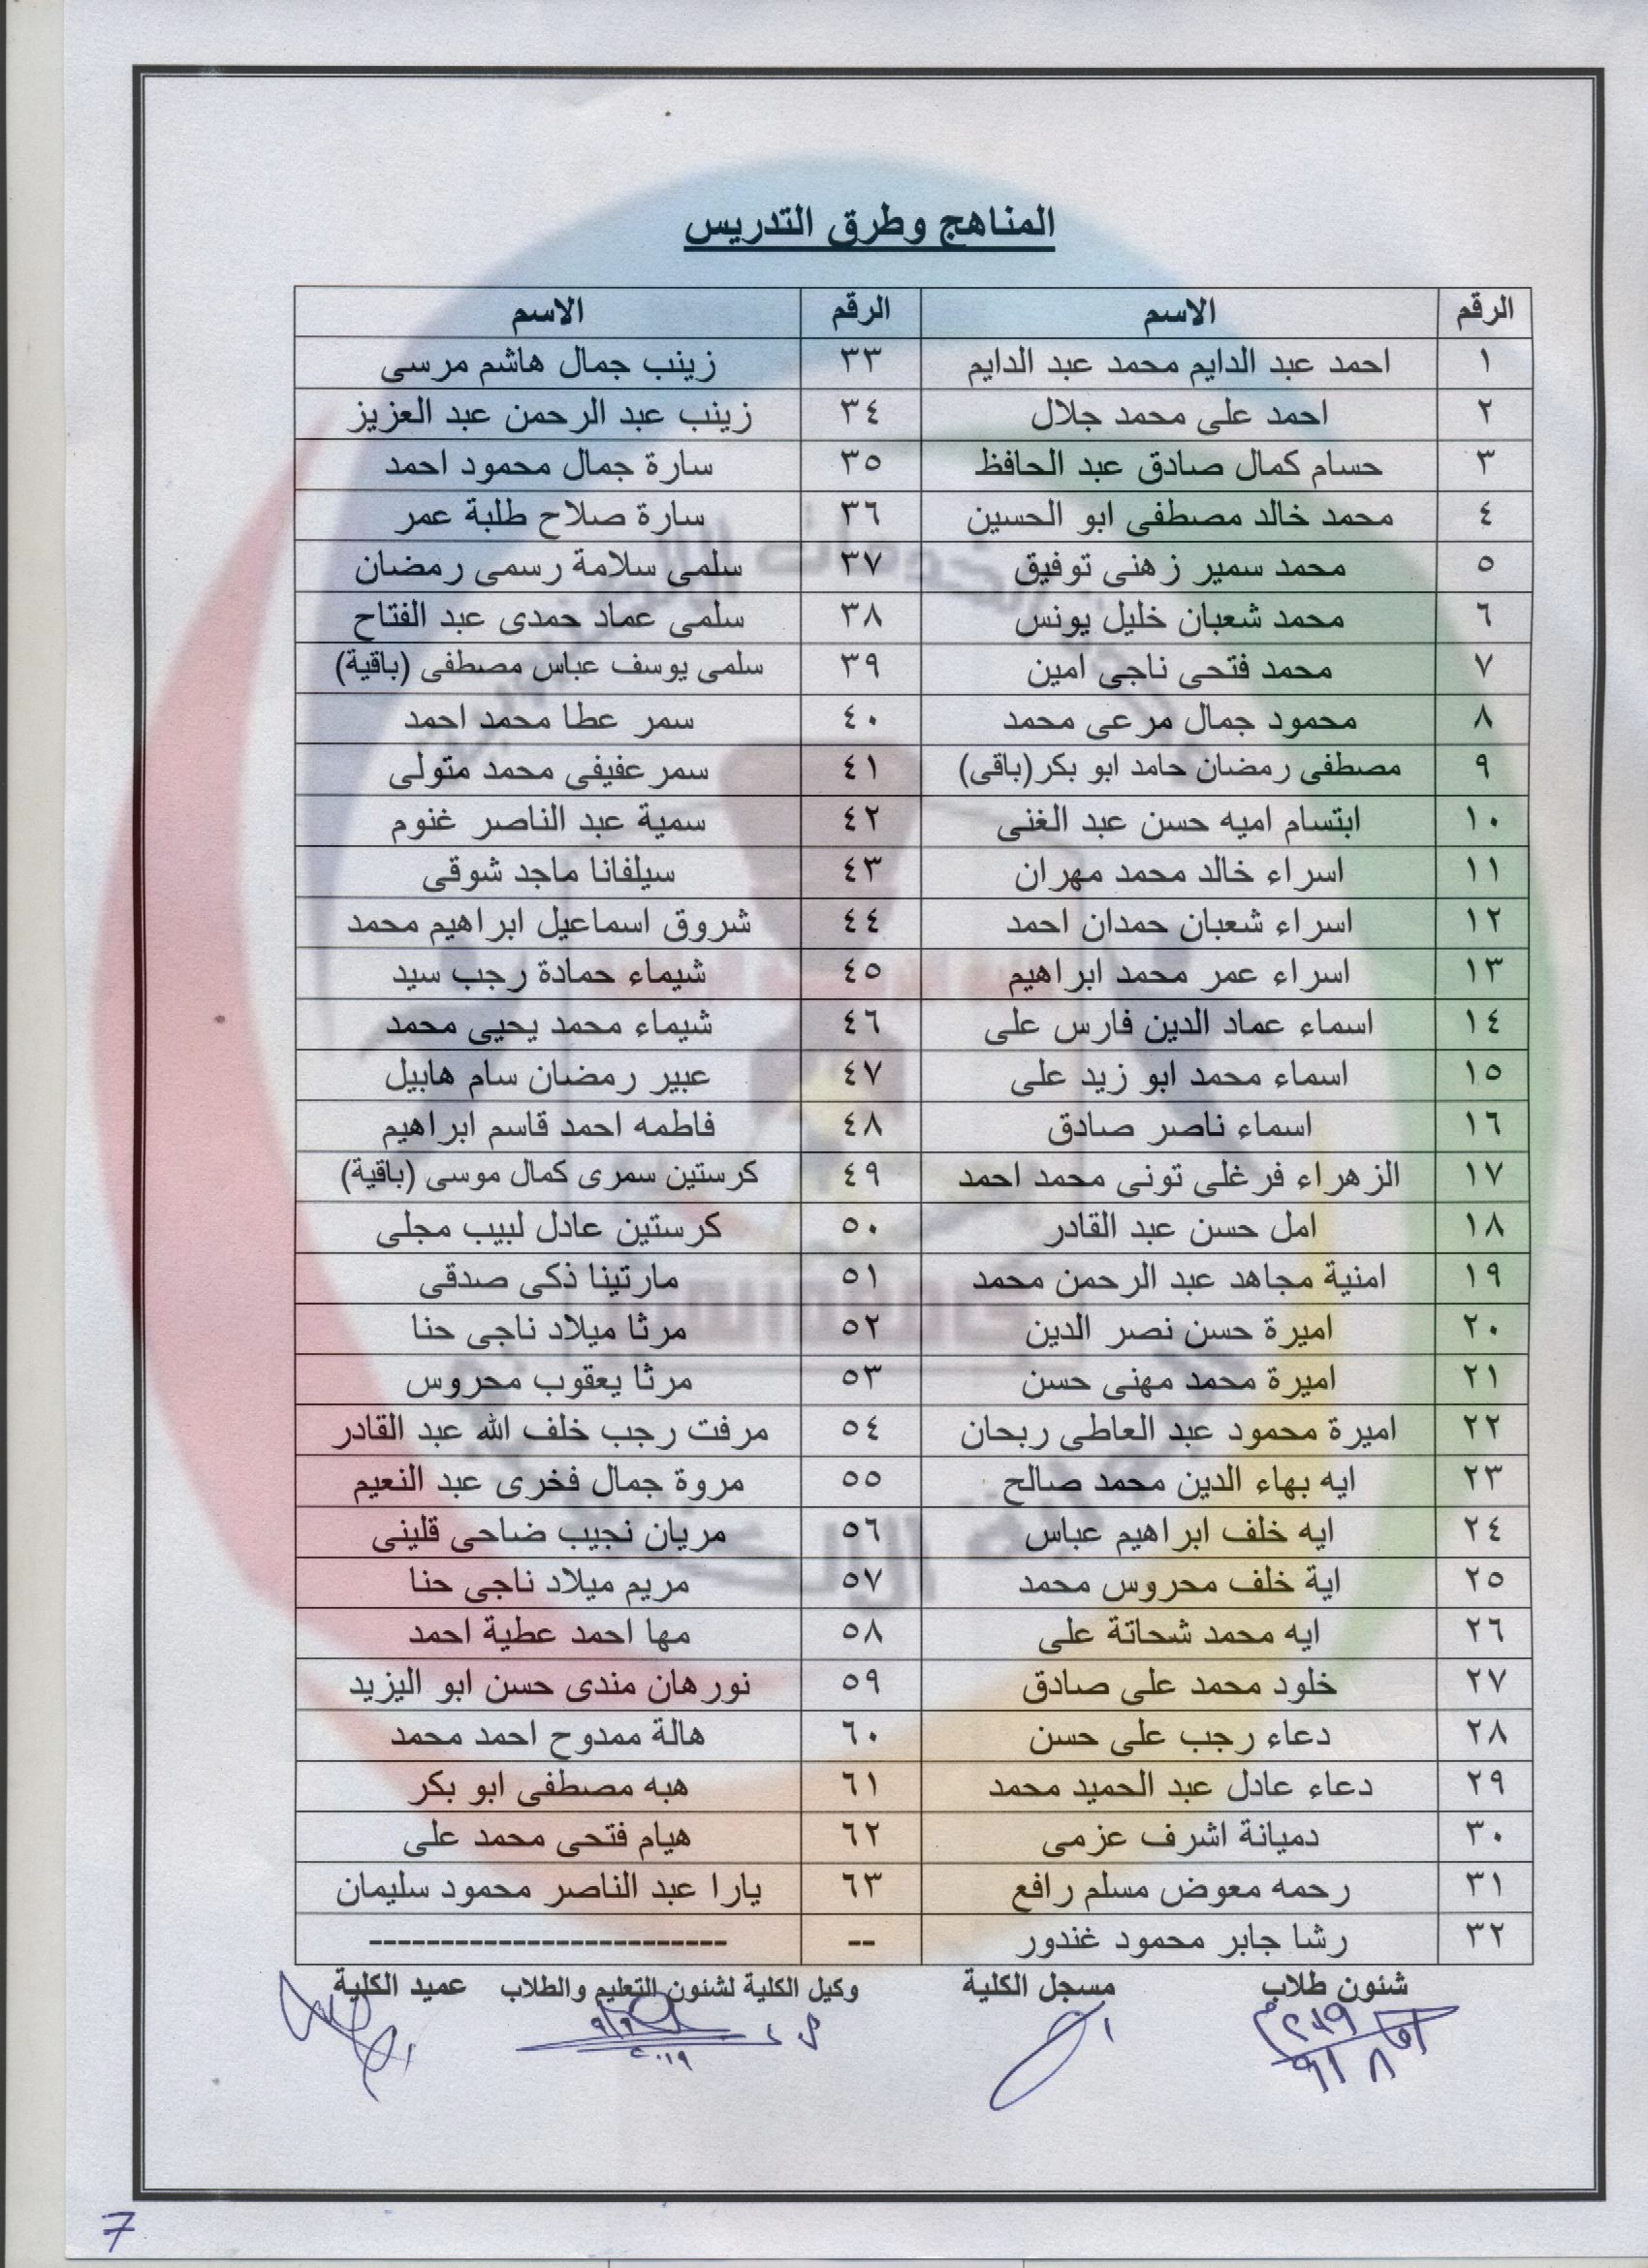 المناهج وطرق التدريس
الرقم الاسم الرقم الاسم
١ احمد عبد الدايم محمد عبد الدايم ٣٣ زينب جمال هاشم مرسى
٢ احمد على محمد جلال ٣٤ زينب عبد الرحمن عبد العزيز
٣ حسام كمال صادق عبد الحافظ ٣٥ سارة جمال محمود احمد
٤ محمد خالد مصطفى ابو الحسين ٣٦ سارة صلاح طلبة عمر
٥ محمد سمير زهنى توفيق ٣٧ سلمى سلامة رسمى رمضان
٦ محمد شعبان خليل يونس ٣٨ سلمى عماد حمدى عبد الفتاح
٧ محمد فتحى ناجى امين ٣٩ سلمى يوسف عباس مصطفى (باقية)
٨ محمود جمال مرعى محمد ٤٠ سمر عطا محمد احمد
٩ مصطفى رمضان حامد ابو بكر(باقى) ٤١ سمر عفيفى محمد متولى
١٠ ابتسام اميه حسن عبد الغنى ٤٢ سمية عبد الناصر غنوم
١١ اسراء خالد محمد مهران ٤٣ سيلفانا ماجد شوقى
١٢ اسراء شعبان حمدان احمد ٤٤ شروق اسماعيل ابراهيم محمد
١٣ اسراء عمر محمد ابراهيم ٤٥ شيماء حمادة رجب سيد
١٤ اسماء عماد الدين فارس على ٤٦ شيماء محمد يحيى محمد
١٥ اسماء محمد ابو زيد على ٤٧ عبير رمضان سام هابيل
١٦ اسماء ناصر صادق ٤٨ فاطمه احمد قاسم ابراهيم
١٧ الزهراء فرغلى تونى محمد احمد ٤٩ كرستين سمرى كمال موسى (باقية)
١٨ امل حسن عبد القادر ٥٠ كرستين عادل لبيب مجلى
١٩ امنية مجاهد عبد الرحمن محمد ٥١ مارتينا ذكى صدقى
٢٠ اميرة حسن نصر الدين ٥٢ مرثا ميلاد ناجى حنا
٢١ اميرة محمد مهنى حسن ٥٣ مرثا يعقوب محروس
٢٢ اميرة محمود عبد العاطى ربحان ٥٤ مرفت رجب خلف الله عبد القادر
٢٣ ايه بهاء الدين محمد صالح ٥٥ مروة جمال فخرى عبد النعيم
٢٤ ايه خلف ابراهيم عباس ٥٦ مريان نجيب ضاحى قلينى
٢٥ اية خلف محروس محمد ٥٧ مريم ميلاد ناجى حنا
٢٦ ايه محمد شحاتة على ٥٨ مها احمد عطية احمد
٢٧ خلود محمد على صادق ٥٩ نورهان مندى حسن ابو اليزيد
٢٨ دعاء رجب على حسن ٦٠ هالة ممدوح احمد محمد
٢٩ دعاء عادل عبد الحميد محمد ٦١ هبه مصطفى ابو بكر
٣٠ دميانة اشرف عزمى ٦٢ هيام فتحى محمد على
٣١ رحمه معوض مسلم رافع ٦٣ يارا عبد الناصر محمود سليمان
٣٢ رشا جابر محمود غندور -- -------------------------
شئون طلاب مسجل الكلية وكيل الكلية لشئون التعليم والطلاب عميد الكلية
٩/٩
٢٠١٩
7